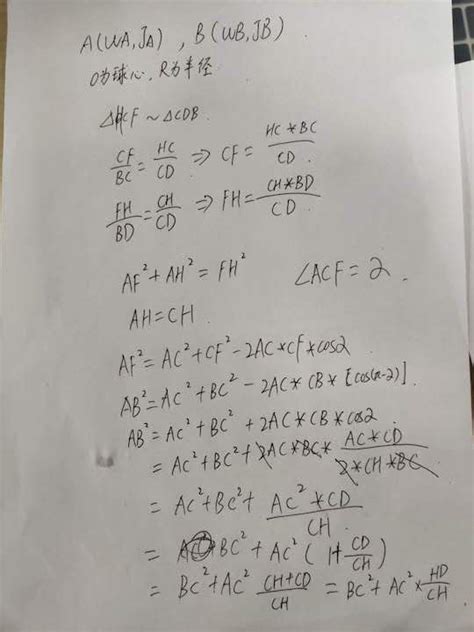 A(WA,JA) , B(WB,JB)
O为球心, R为半径.
△HCF ~ △CDB.
CF/BC = HC/CD ⇒ CF = HC*BC/CD
FH/BD = CH/CD ⇒ FH = CH*BD/CD
AF²+AH²=FH² ∠ACF=2.
AH=CH
AF²=AC²+CF²-2AC*CF*cos2
AB²=AC²+BC²-2AC*CB*[cos(π-2)].
AB²=AC²+BC²+2AC*CB*cos2
=AC²+BC²+2AC*BC*AC*CD/2*CH*BC
=AC²+BC²+AC²*CD/CH
=BC²+AC²(1+CD/CH)
=BC²+AC² CH+CD/CH = BC²+AC²*HD/CH